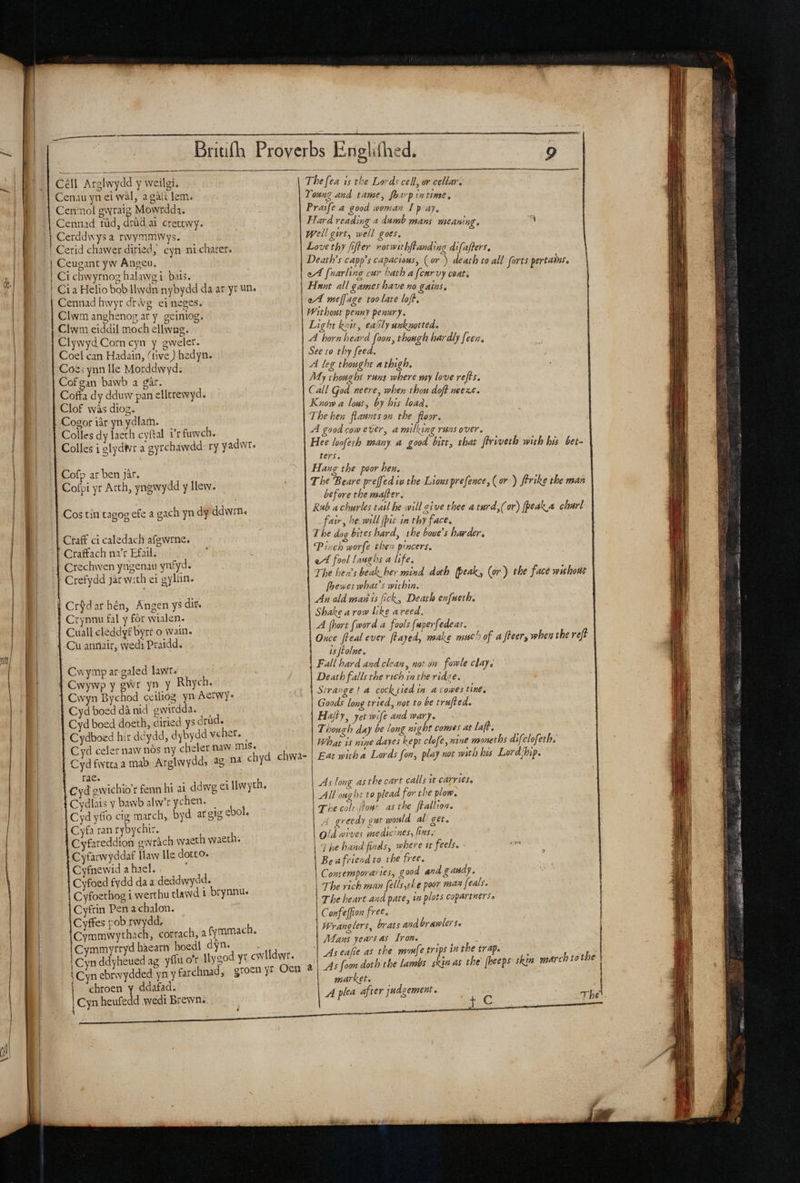 Britiſh Proverbs Engliſhed. 9
Cêll Arglwydd y weilgi.
Cenau yn ei wâl, a gâil lem.
Canmol gwraig Mowrdda.
Cennad fûd, drûd ai crettwy.
Cerddwys a rwymmwys.
Cerid chawer diried, cyn ni charer.
Ceugant yw Angeu.
Ci chwyrnog halawg i bais.
Ci a Helio bob llwdn nybydd da ar yr un.
Cennad hwyr drŵg ei neges.
Clwm anghenog ar y geiniog.
Clwm eiddil moch ellwng.
Clywyd Corn cyn y gweler.
Coel can Hadain, (five) hedyn.
Coes ynn lle Morddwyd.
Cofgan bawb a gâr.
Coffa dy dduw pan ellttewyd.
Clof wâs diog.
Cogor iâr yn ydlam.
Colles dy laeth cyſtal i'r fuwch.
Colles i glydŵr a gyrchawdd ry yadwr.
Coſp ar ben jâr.
Coſpi yr Arth, yngwydd y llew.
Cos tin taeog efe a gach yn dy ddwrn.
Craff ci caledach aſgwrne.
Craffach na'r Efail.
Crechwen yngenau ynfyd.
Crefydd jâr with ei gylfin.
Crŷd ar hên, Angen ys dir.
Crynnu fal y for wialen.
Cuall cleddŷf byrr o wain.
Cu annair, wedi Praidd.
Cwymp ar galed lawr.
Cwywp y gwr yn y Rhych.
Cwyn Bychod ceiliog yn Aerwy.
Cyd boed dâ nid gwirdda.
Cyd boed doeth, diried ys drûd.
Cydboed hir ddydd, dybydd vcher.
Cyd celer naw nôs ny cheler naw mis.
Cyd fwrea mab Arglwydd, ag na chyd chwa-
rae.
Cyd gwichio'r fenn hi ai ddwg ei llwyth.
Cydlais y bawb alw'r ychen.
Cyd yſſo cig march, byd argig ebol.
Cyfa ran rybychir.
Cyfareddion gwrâch waeth waeth.
Cyfarwyddaf llaw lle dotto.
Cyfnewid a hael.
Cyfoed fydd da a deddwydd.
Cyfoethog i werthu tlawd i brynnu.
Cyftin Pen a chalon.
Cyffes rob rwydd.
Cymmwythach, cottach, a fymmach.
Cymmyrryd haearn hoedl dŷn.
Cyn ddyheued ag yſſu o'r llygod yr cwlldwr.
Cyn ebrwydded yn y farchnad, groen yr Oen a
chroen y ddafad.
Cyn heuſedd wedi Brewn.
The ſea is the Lords cell, or cellar.
Young and tame, ſharp in time.
Praiſe a good woman I pray.
Hard reading a dumb mans meaning.
Well girt, well goes.
Love thy ſiſter notwithſtanding diſaſters.
Death's capp's capacious, (or) death to all ſorts pertains.
A ſnarling cur hath a ſcurvy coat.
Hunt all games have no gains.
A meſſage too late loſt.
Without penny penury.
Light knit, eaſily unknotted.
A horn heard ſoon, though hardly ſeen.
See to thy ſeed.
A leg thought a thigh.
My thought runs where my love reſts.
Call God neere, when thou doſt neeze.
Know a lout, by his load.
The hen flaunts on the floor.
A good cow ever, a milking runs over.
Hee looſeth many a good bitt, that ſtriveth with his bet-
ters.
Hang the poor hen.
The Beare preſſed in the Lions preſence, (or) ſtrike the man
before the maſter.
Rub a churles tail he will give thee a turd, (or) ſpeak a churl
fair, he will ſpit in thy face.
The dog bites hard, the bone's harder.
Pinch worſe then pincers.
A fool laughs a life.
The hen's beak her mind doth ſpeak, (or) the face without
ſhewes what's within.
An old man is ſick, Death enſueth.
Shake a row like a reed.
A ſhort ſword a fools ſuperſedeas.
Once ſteal ever ſtayed, make much of a ſteer, when the reſt
is ſtolne.
Fall hard and clean, not on fowle clay.
Death falls the rich in the ridge.
Strange! a cock tied in a cowes tine.
Goods long tried, not to be truſted.
Haſty, yet wiſe and wary.
Though day be long night comes at laſt.
What is nine dayes kept cloſe, nine moneths diſcloſeth.
Eat with a Lords ſon, play not with his Lordſhip.
As long as the cart calls it carries.
All ought to plead for the plow.
The colt ſtout as the ſtallion.
A greedy gut would all get.
Old wives medicines, ſins.
The hand finds, where it feels.
Be a friend to the free.
Contemporaries, good and gaudy.
The rich man ſells, the poor man ſeals.
The heart and pate, in plots copartners.
Confeſſion free.
Wranglers, brats and brawlers.
Mans years as Iron.
As eaſie as the mouſe trips in the trap.
As ſoon doth the lambs skin as the ſheeps skin march to the
market.
A plea after judgement.
† C The